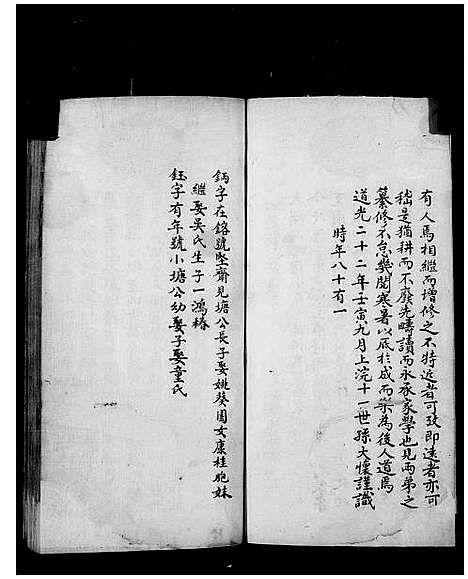 有人焉相繼而增修之不特近者可考即遠者亦可
稽是猶耕而不廢先疇讀而永承家學也見兩弟之
纂修不怠幾閱寒暑以底於成而樂為後人道焉
道光二十二年壬寅九月上浣十一世孫大懷謹識
時年八十有一
鈵字在鎔號堅齋見塘公長子娶姚葵園女康桂胞妹
繼娶吳氏生子一鴻椿
鈺字有年號小塘公幼娶子娶童氏